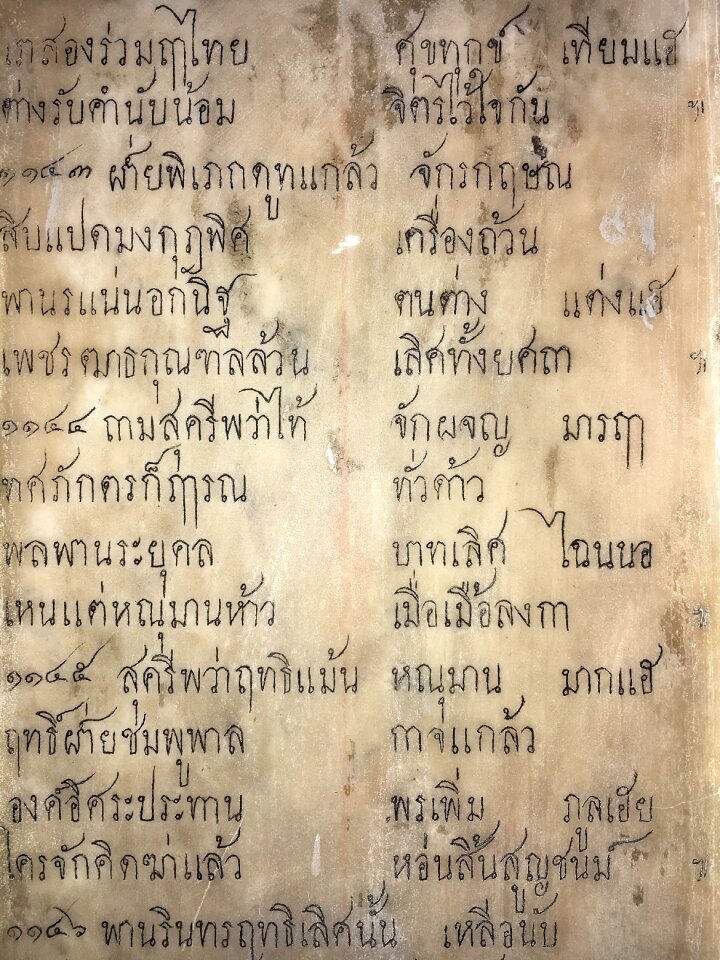 เภสองร่วมฤๅไทย ศุขทุกข์ เทียมแฮ
ต่างรับคำนับน้อม จิตรไว้ใจกัน ฯ
๑๑๔๓ ฝ่ายพิเภกดูทแกล้ว จักรกฤษณ
สิบแปดมงกุฎพิศ เครื่องถ้วน
พานรแน่นอกนิฐ ตนต่าง แต่งแฮ
เพชรฒาธกุณฑลล้วน เลิศทั้งยศถา ฯ
๑๑๔๔ ถามสุครีพว่าไท้ จักผจญ มารฤๅ
ทศภักตรก็ฦๅรณ ทั่วด้าว
พลพานระยุคล บาทเลิศ ไฉนนอ
เหนแต่หณุมานห้าว เมื่อเมือลงกา ฯ
๑๑๔๕ สุครีพว่าฤทธิแม้น หณุมาน มากแฮ
ฤทธิ์ฝ่ายชมพูพาล กาจแกล้ว
องค์อิศระประทาน พรเพิ่ม ภูลเฮย
ใครจักคิดฆ่าแล้ว หอ่นสิ้นสูญชนม์ ฯ
๑๑๔๖ พานรินทรฤทธิเลิศนั้น เหลือนับ